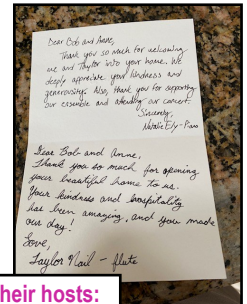 Dear Bob and Anne,
Thank you so much for welcoming
me and Taylor into your home. We
deeply appreciate your kindness and
generosity. Also, thank you for supporting
our ensemble and attending our concert.
Sincerely,
Natalie Ely - Piano
Dear Bob and Anne,
Thank you so much for opening
your beautiful home to us.
Your kindness and hospitality
has been amazing, and you made
our day!
Love,
Taylor Nail - flute
heir hosts: